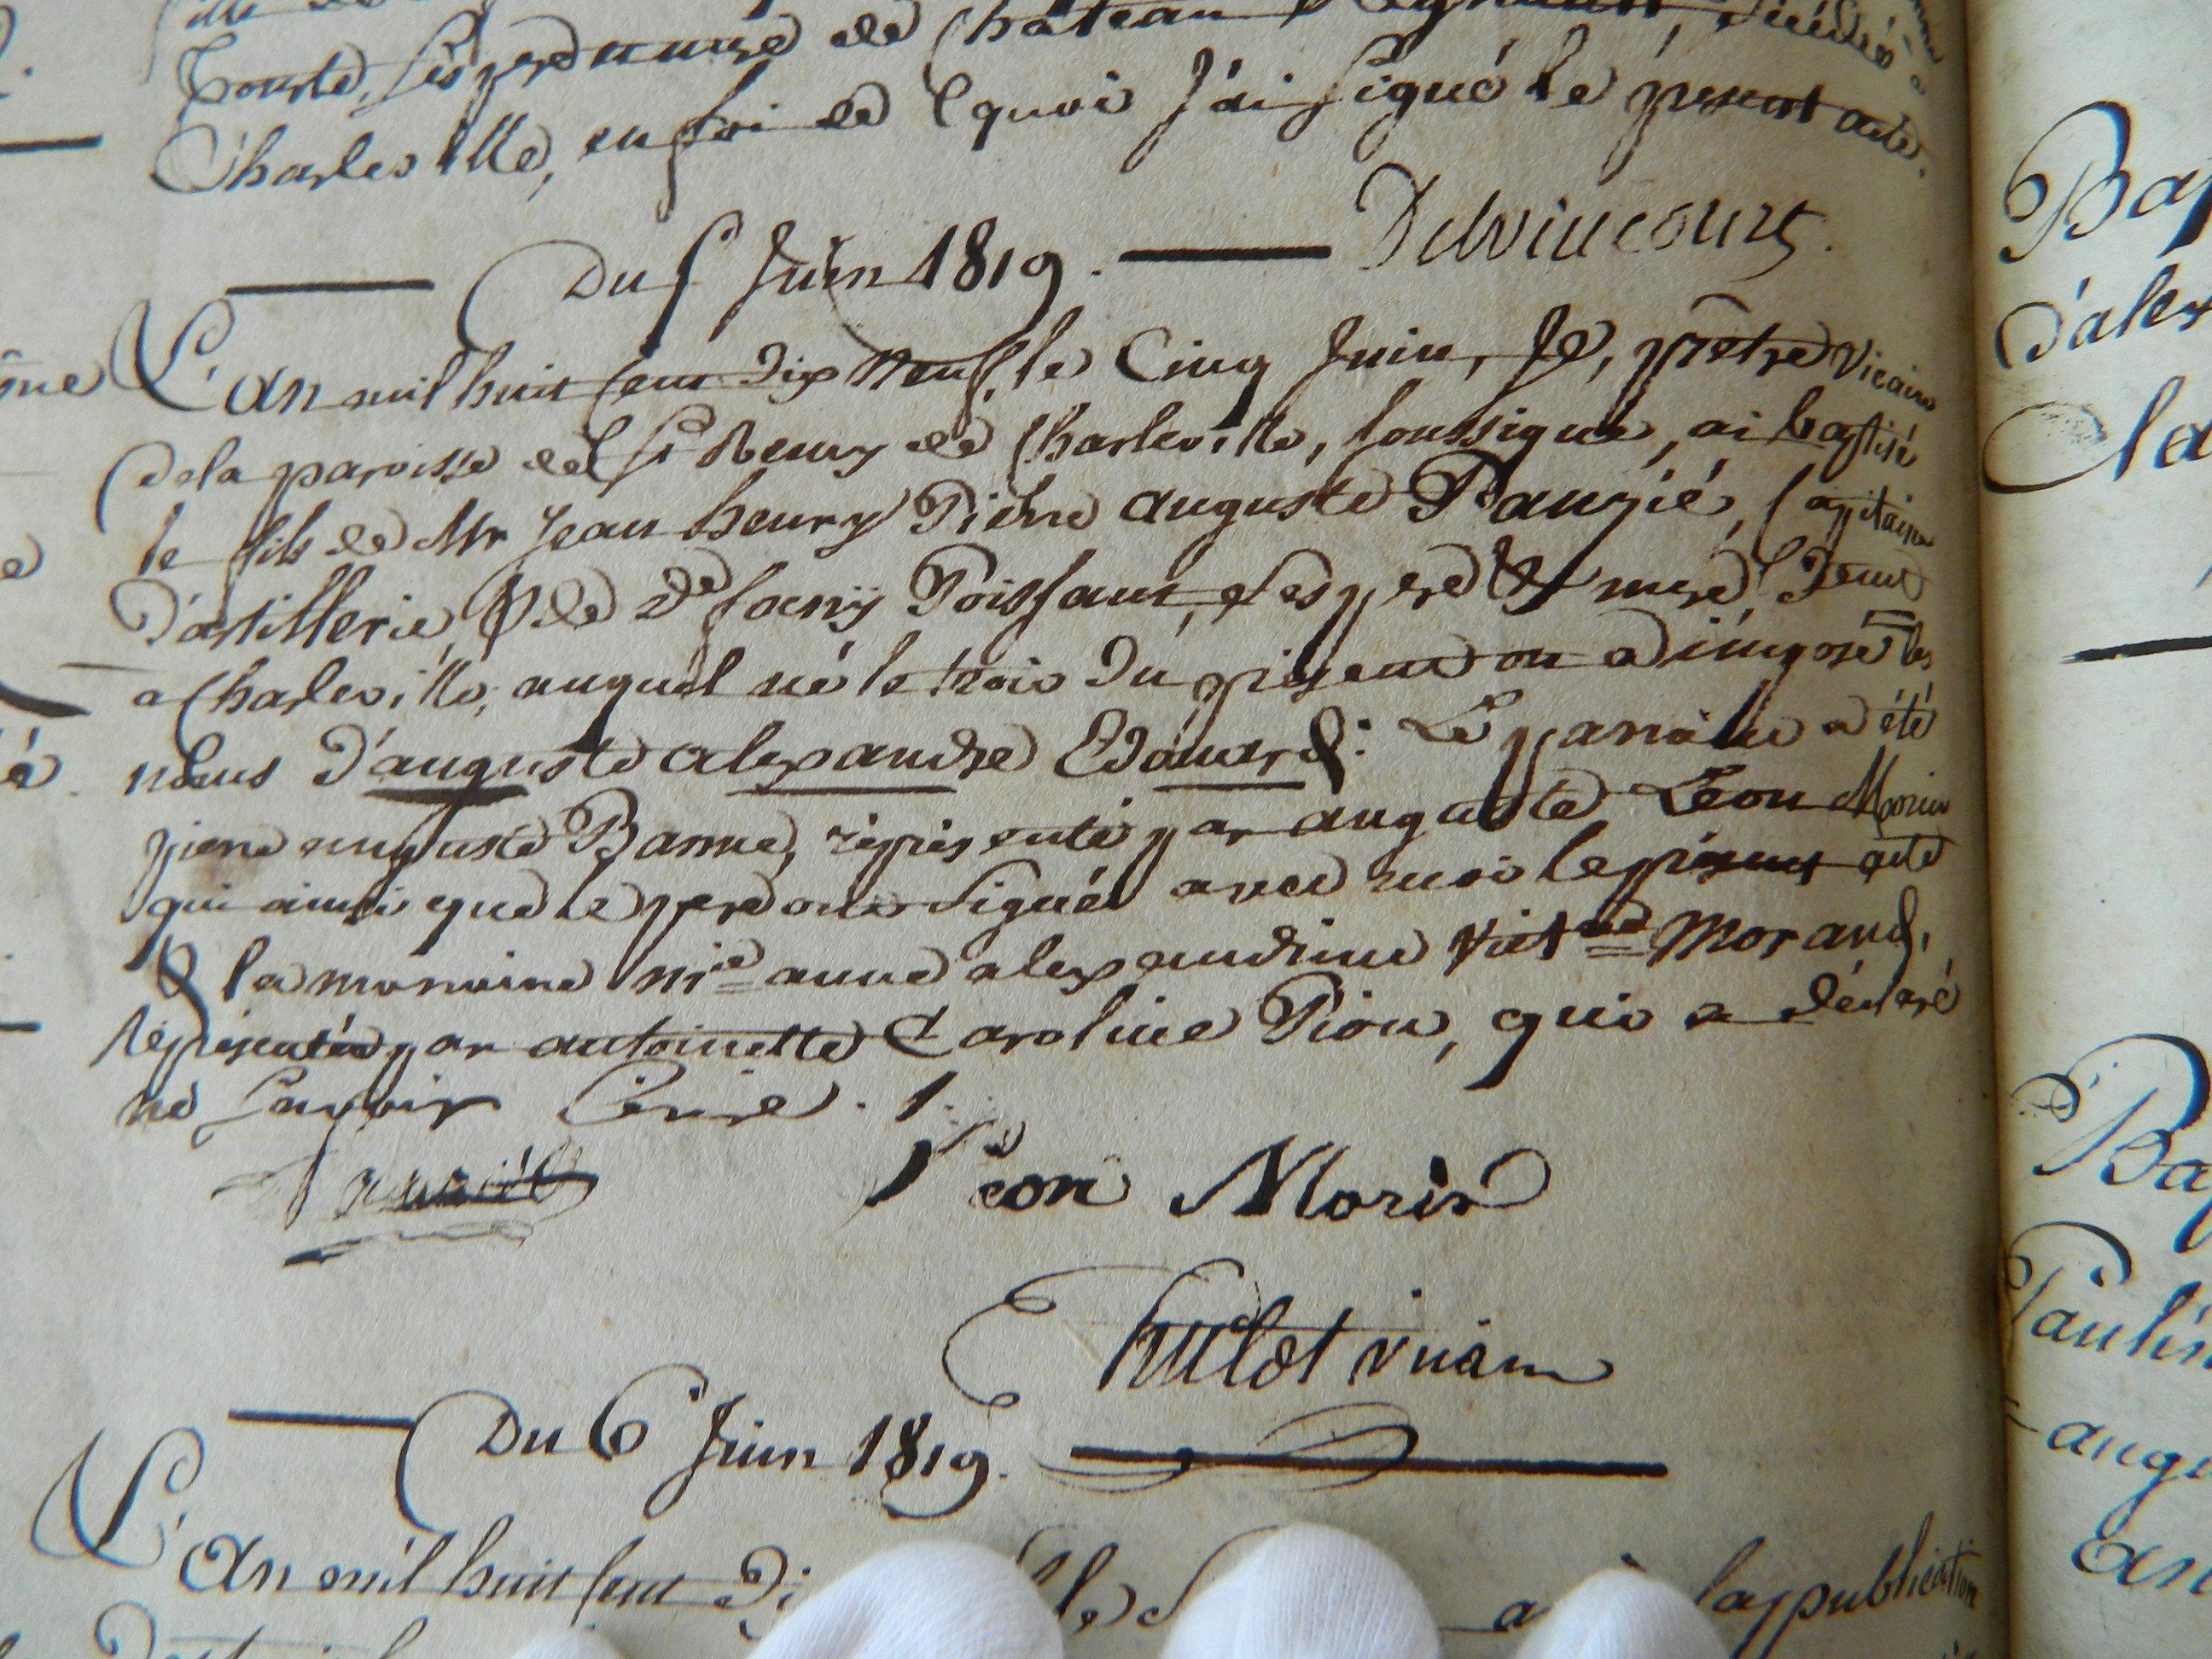 Charleville, en foi de quoi j'ai signé le présent acte.
Delvincourt
Du 5 Juin 1819.
L'an mil huit cent dix neuf, le cinq Juin, Je, prêtre vicaire
de la paroisse de St Remy de Charleville, soussigné, ai baptisé
le fils de Mr Jean henry Pierre auguste capitaine
d'artillerie, & de de fanny Poissant, ses pere & mere, demt
a Charleville, auquel né le trois du présent on a imposé les
noms d'auguste alexandre Edouard. Le parrain a été
pierre auguste représenté par auguste Léon Morin
qui ainsi que le pere ont signés avec moi le présent acte
& la marraine mie anne alexandrine Morand,
représentée par antoinette Caroline Pion, qui a déclaré
ne savoir écrire.
Léon Morin
hulot vicaire
Du 6 Juin 1819.
L'an mil huit cent
la publication
Bap
d'alex
Cla
Ba
Paulin
augu
an